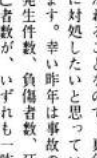 れることなので、
に対処したいと思ってい
ます。幸い昨年は事故の
発生件数、負傷者数、死
亡者数が、いずれも一昨